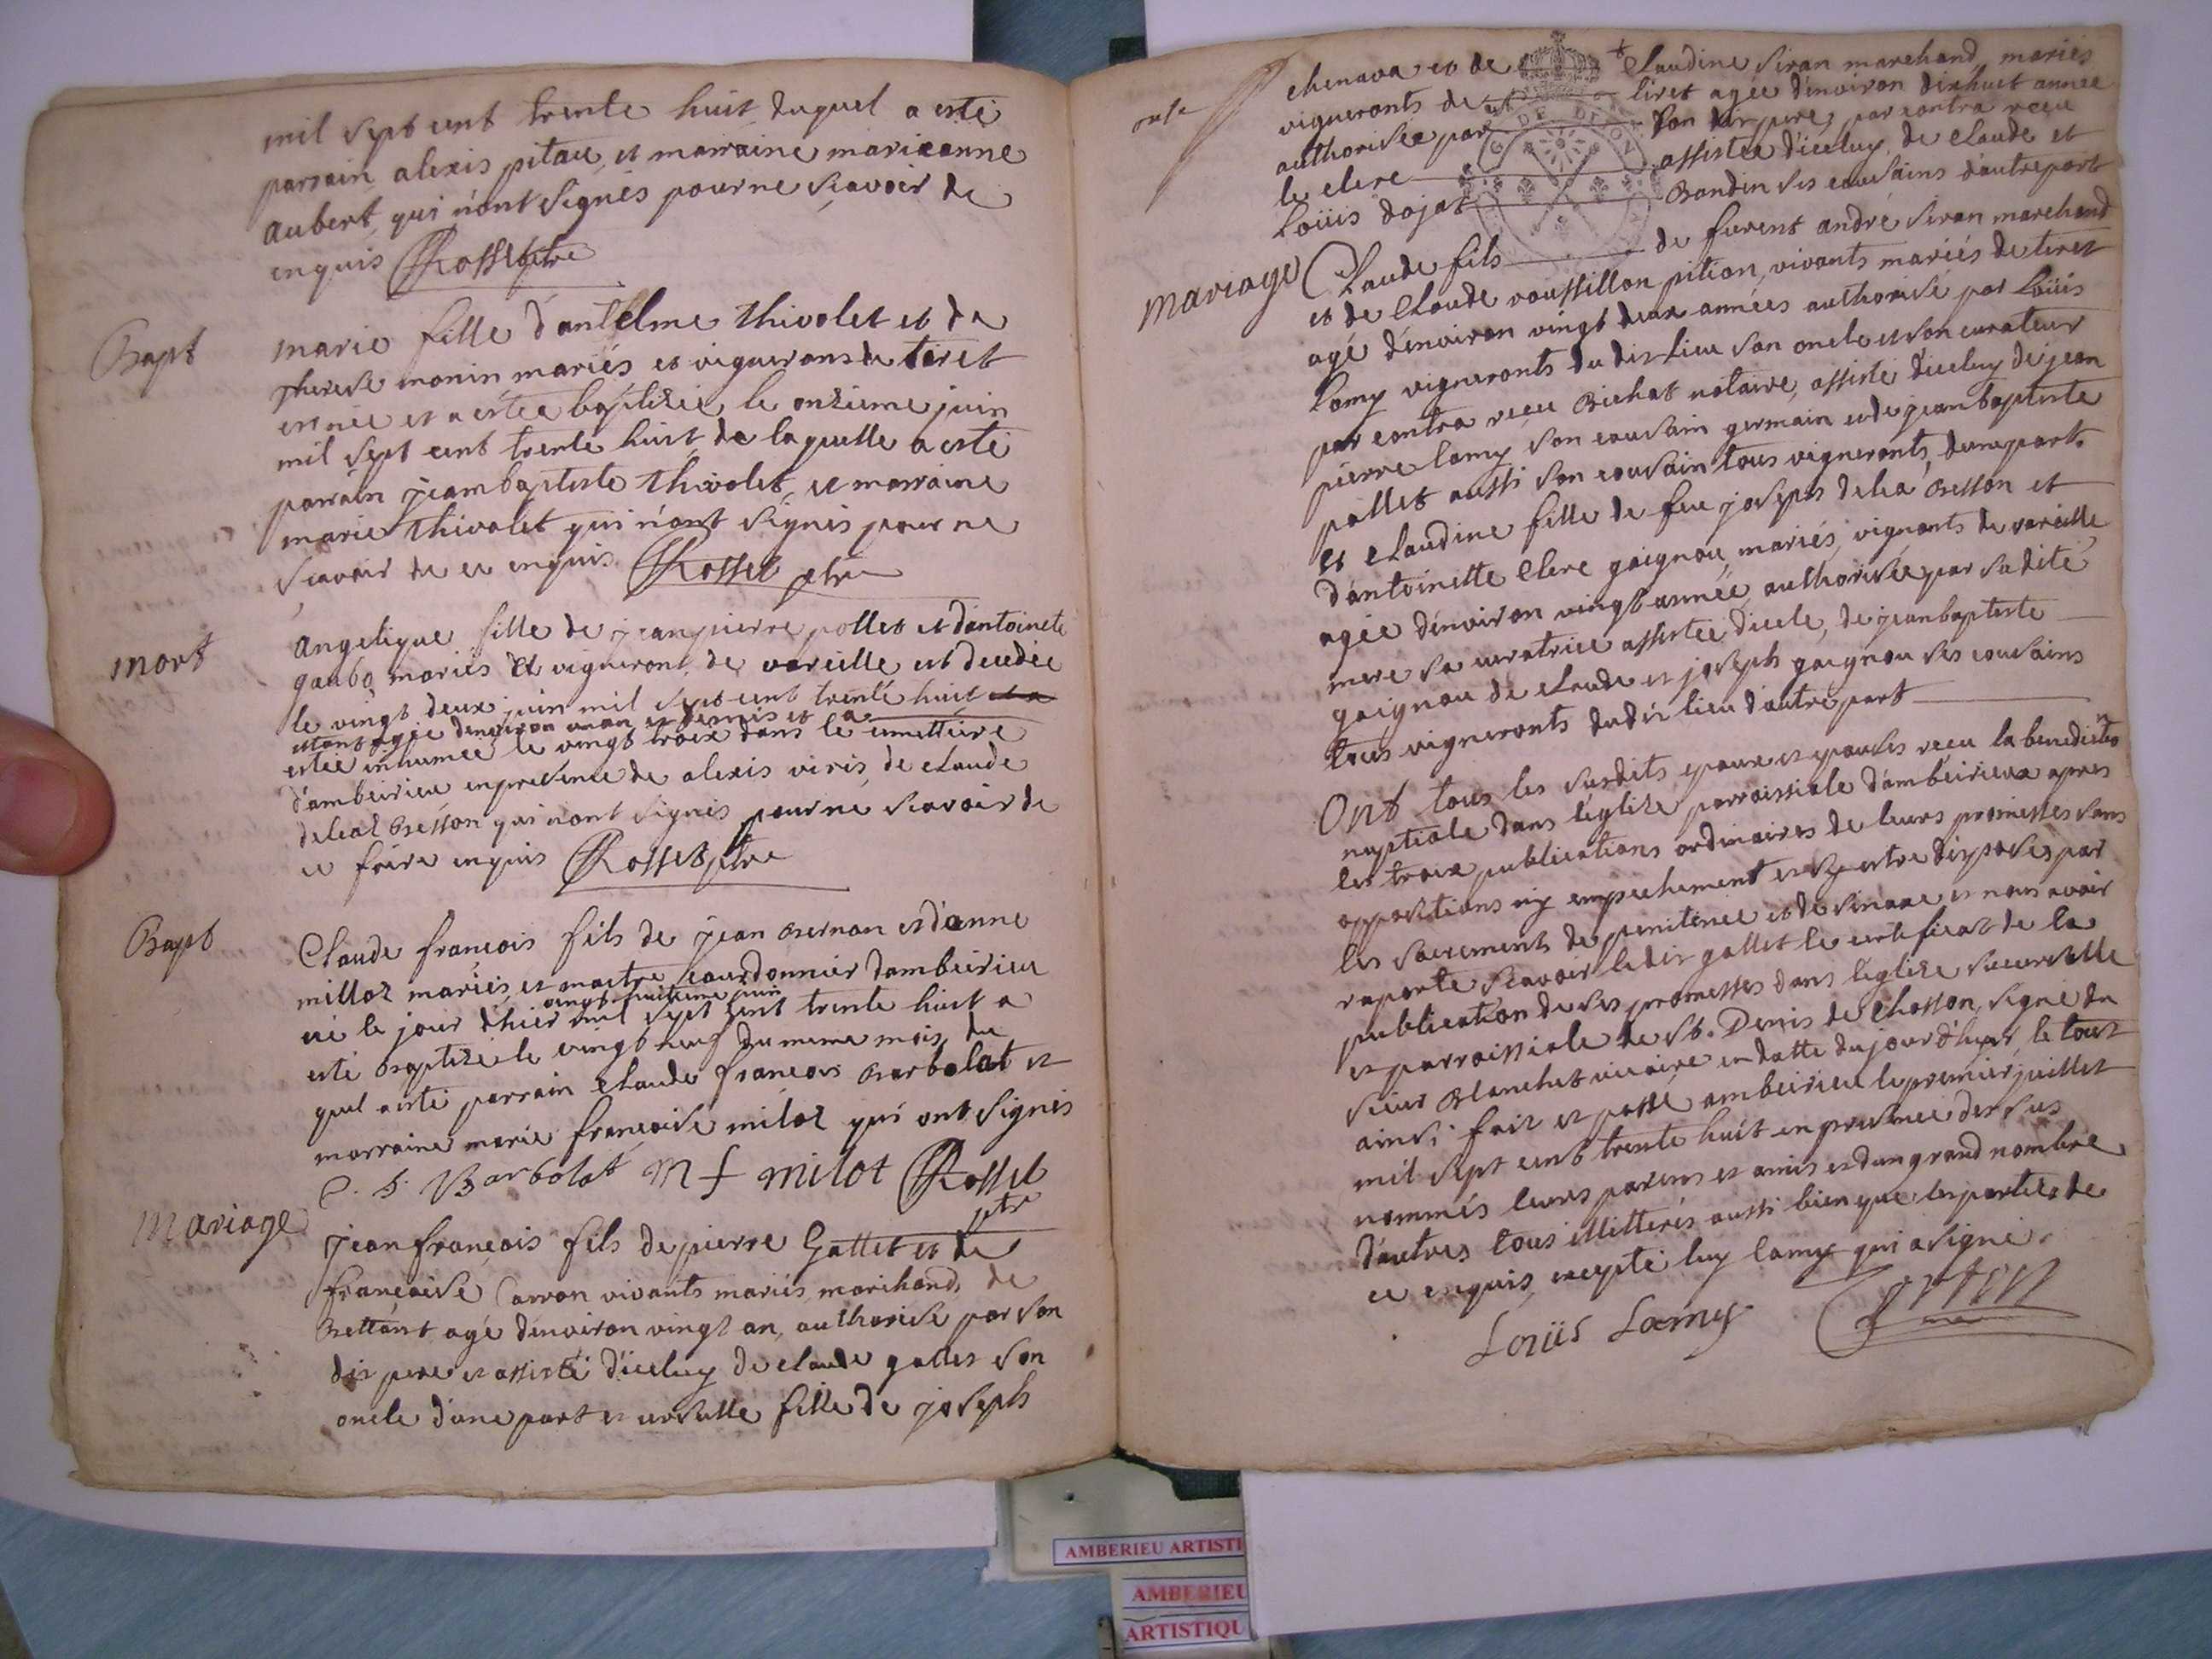 mil sept cent trente huit duquel a esté
parrain alexis pitau, et marraine marieanne
aubert, qui n'ont signés pour ne sçavoir de
enquis Rosset ptre
Bapt
marie fille d'antelme thivolet et de
therese monin mariés et vignerons de tiret
est née et a estée baptisée le onzieme juin
mil sept cent trente huit, de laquelle a esté
parrain jeanbaptiste thivolet, et marraine
marie thivolet qui n'ont signés pour ne
scavoir de ce enquis Rosset ptre
mort
angelique fille de jeanpierre pollet et d'antoinete
ganbo mariés et vigneront de vareille est decedee
le vingt deux juin mil sept cent trente huit et a
estant agée denviron un an et demis et a
estee inhumée le vingt troix dans le cimettiere
d'ambeirieu enpresence de alexis viris, de claude
deleaz Besson qui n'ont signés pour ne scavoir de
ce faire enquis Rosset ptre
Bapt
Claude françois fils de jean Bernan et d'anne
milloz mariés, et maitre courdonnier dambeirieu
né le jour d'hier vingt huitieme juin mil sept cent trente huit a
esté Baptizé le vingt neuf du meme mois, du
quel a esté parrain claude françois Barbolat et
marraine marie françoise miloz qui ont signés
C. F. Barbolat M f milot Rosset
ptr
Mariage
jeanfrançois fils de pierre Gallet et de
françoise Carron vivants mariés, marchand, de
Bettant agé denviron vingt an, authorisé par son
dit pere et assisté d'iceluy de claude gallet son
oncle d'une part et ursulle fille de joseph
chenava et de claudine siran marchand mariés
vigneronts de tiret agée d'environ dixhuit année
authorisée par son dit pere, par contra reçeu
le clerc assistée d'iceluy, de claude et
Loüis dojat Bandin ses cousains d'autrepart
GEN DE DIJON
mariage
Claude fils de furent andré siran marchand
et de claude roussillon pition, vivants mariés de tiret
agé d'environ vingt deux années authorisé par Loüis
Lamy vigneronts du dit lieu son oncle et son curateur
par contra reçeu Bichat notaire, assisté d'iceluy de jean
pierre lamy son cousain germain et de jeanbaptiste
pollet aussi son cousain tous vigneronts, d'unepart.
et claudine fille de feu joseph delea Besson et
d'antoinette clerc gaignou, mariés, vignonts de vareille
agée d'environ vingt année, authorisée par sa dite
mere sa curatrice assistée d'icele, de jeanbaptiste
gaignou de claude et joseph gaignou ses cousains
tous vigneronts dudit lieu d'autre part
Ont tous les susdits epoux et epouses reçeu la benediction
nuptiale dans l'eglize parroissiale d'ambeirieux apres
les troix publications ordinaires de leurs promesses sans
oppositions ny empechement et s'y estre disposés par
les sacrements de penitence et de sinaxe et nous avoir
raporté scavoir ledit gallet le certificat de la
publication de ses promesses dans l'eglize sucursalle
et parroissiale de St. Denis de chosson, signé du
sieur Blanchet vicaire en datte du jour d'huyer, le tout
ainsi fait et passé ambeirieu le premier juillet
mil sept cent trente huit en presence des sus
nommés leurs parens et amis et d'un grand nombre
d'autres tous illitterés aussi bien que les parties de
ce enquis, excepté luy lamy qui a signé.
Loüis Lamy
AMBERIEU ARTISTI
AMBERIEU
ARTISTIQU